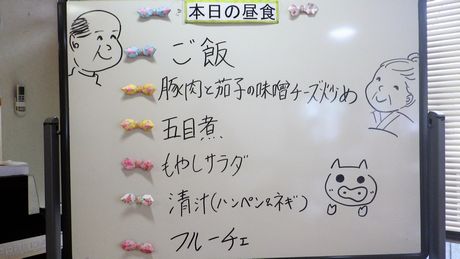 本日の昼食
ご飯
豚肉と茄子の味噌チーズ炒め
五目煮
もやしサラダ
清汁(ハンペン&ネギ)
フルーチェ